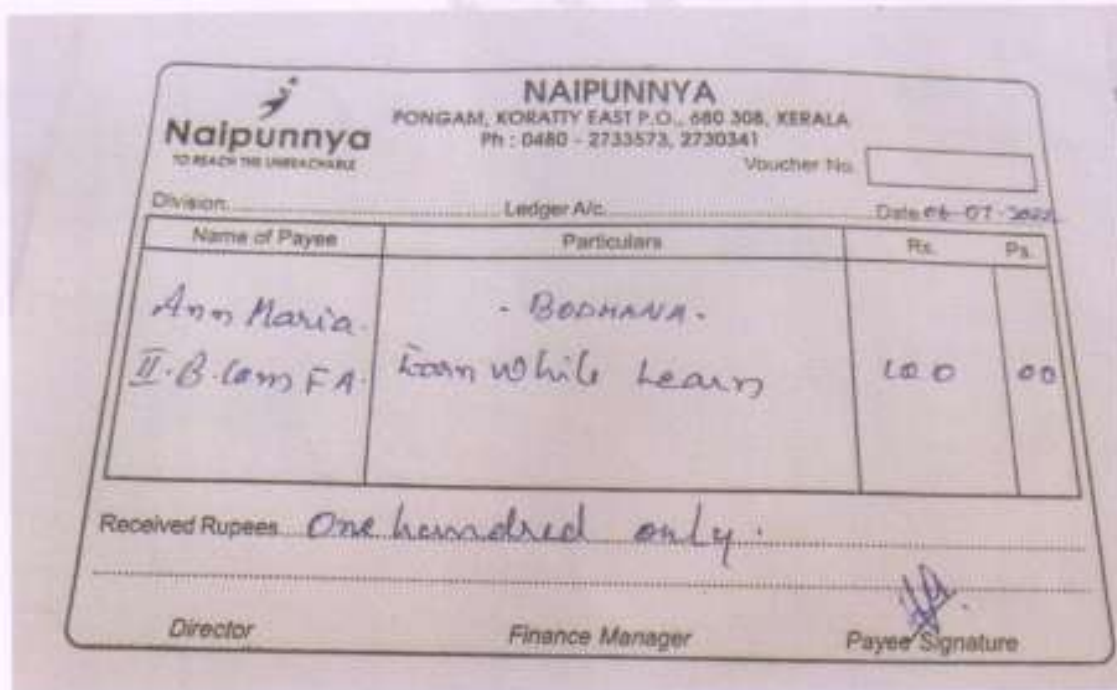 NAIPUNNYA
Naipunnya
TO REACH THE UNREACHABLE
PONGAM, KORATTY EAST P.O., 680 308, KERALA
Ph : 0480 - 2733573, 2730341
Voucher No.
Division Ledger A/c Date 06-07-2022
Name of Payee Particulars Rs. Ps.
Ann Maria. - BODHANA -
II. B. Com FA. Earn While Learn 100 00
Received Rupees One hundred only.
Director Finance Manager Payee Signature